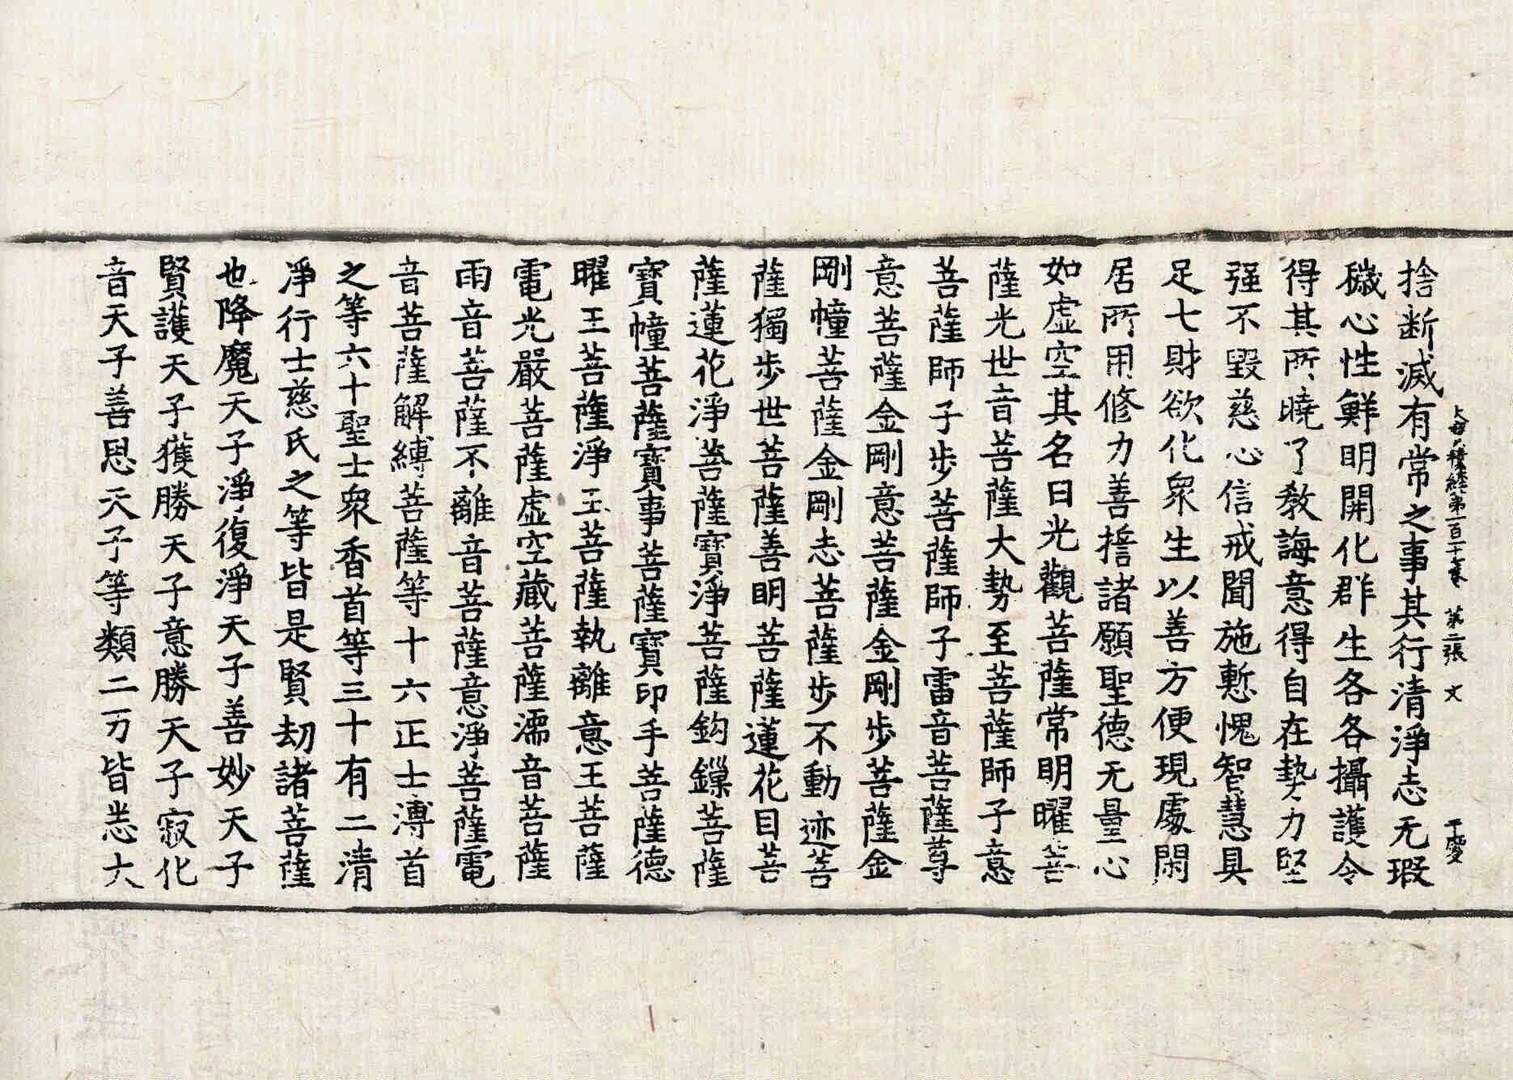 大寶積經第一百一十七卷 第二張 文
捨斷滅有常之事其行清淨志无瑕
穢心性鮮明開化群生各各攝護令
得其所曉了教誨意得自在勢力堅
强不毀慈心信戒聞施慙愧智慧具
足七財欲化衆生以善方便現處閑
居所用修力善權諸願聖德无量心
如虛空其名曰光觀菩薩常明曜菩
薩光世音菩薩大勢至菩薩師子意
菩薩師子步菩薩師子雷音菩薩尊
意菩薩金剛意菩薩金剛步菩薩金
剛幢菩薩金剛志菩薩步不動迹菩
薩獨步世菩薩善明菩薩蓮花目菩
薩蓮花淨菩薩寶淨菩薩鈎鏁菩薩
寶幢菩薩寶事菩薩寶印手菩薩德
曜王菩薩淨王菩薩執離意王菩薩
電光嚴菩薩虛空藏菩薩濡音菩薩
雨音菩薩不離音菩薩意淨菩薩電
音菩薩解縛菩薩等十六正士溥首
之等六十聖士衆香首等三十有二清
淨行士慈氏之等皆是賢劫諸菩薩
也降魔天子淨復淨天子善妙天子
賢護天子獲勝天子意勝天子寂化
音天子善思天子等類二万皆志大